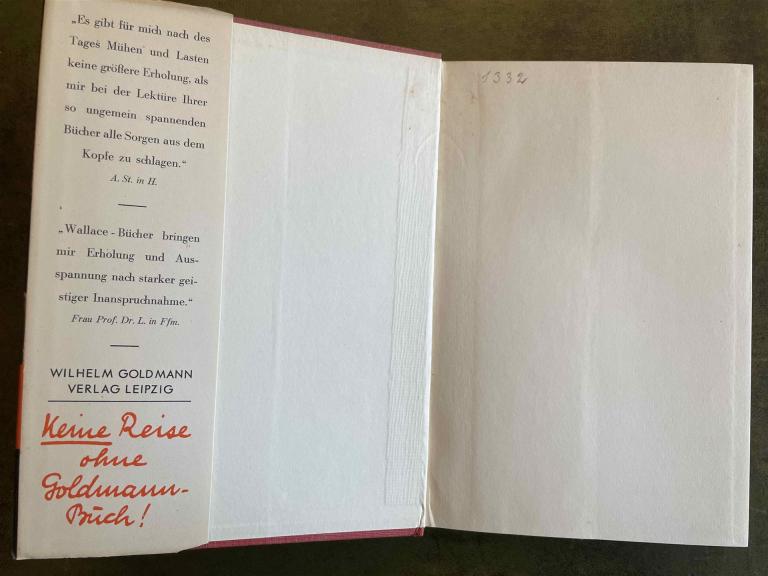 „Es gibt für mich nach des
Tages Mühen und Lasten
keine größere Erholung, als
mir bei der Lektüre Ihrer
so ungemein spannenden
Bücher alle Sorgen aus dem
Kopfe zu schlagen.“
A. St. in H.
„Wallace-Bücher bringen
mir Erholung und Aus-
spannung nach starker gei-
stiger Inanspruchnahme.“
Frau Prof. Dr. L. in Ffm.
WILHELM GOLDMANN
VERLAG LEIPZIG
Keine Reise
ohne
Goldmann-
Buch!
1332